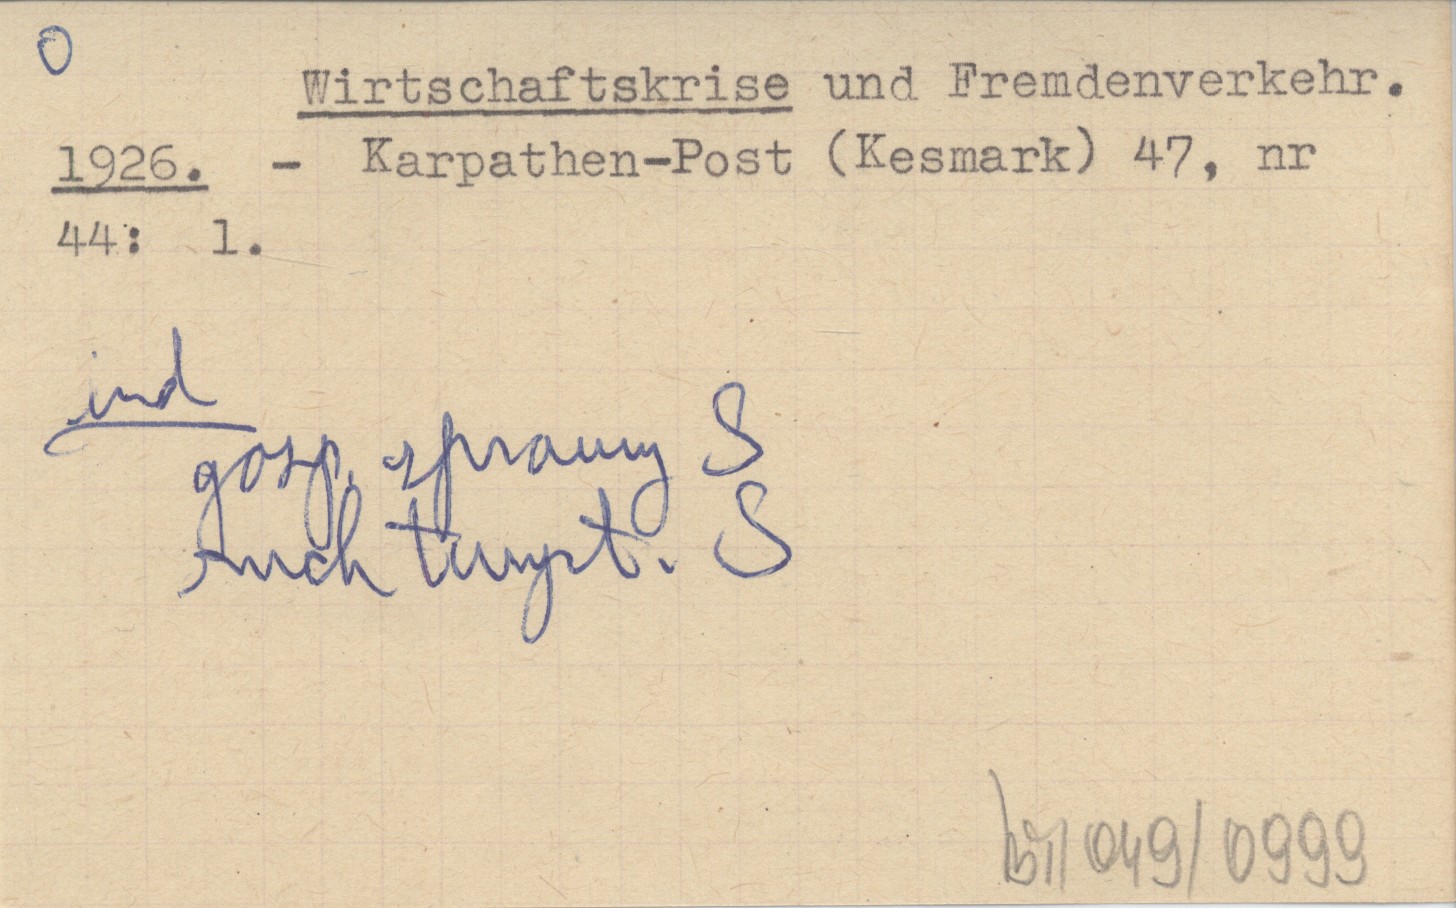 O
Wirtschaftskrise und Fremdenverkehr.
1926. - Karpathen-Post (Kesmark) 47, nr
44: 1.
ind
gosp. sprawy S
ruch turyst. S
049/0999